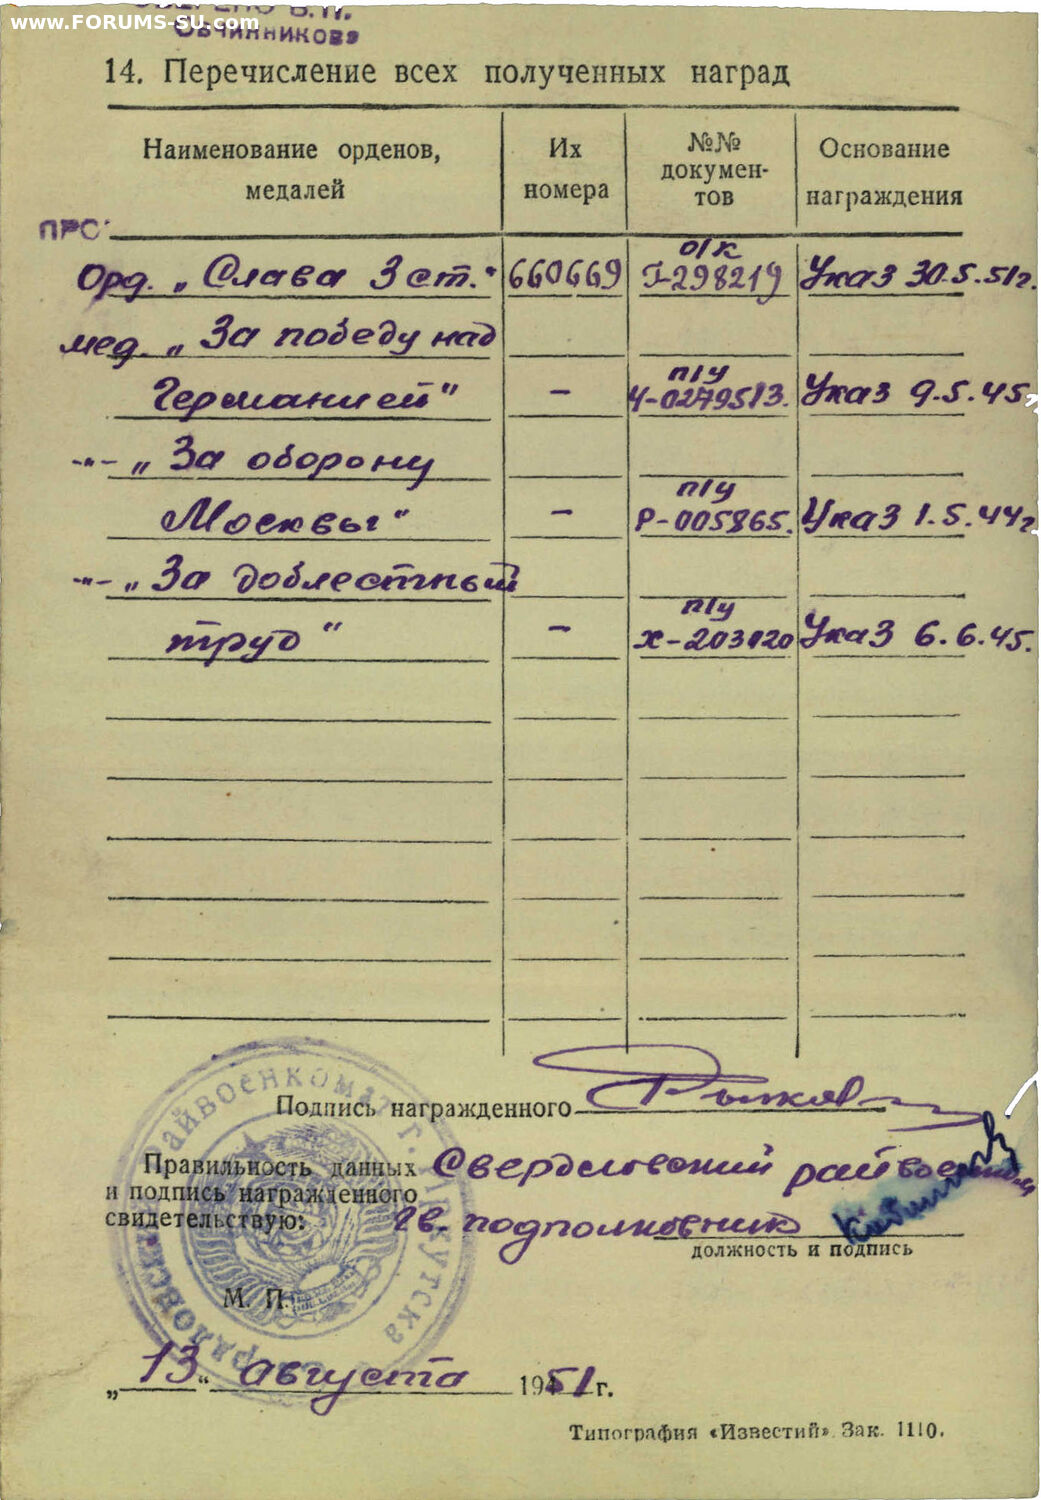 www.FORUMS-SU.com
Овчинникова
14. Перечисление всех полученных наград
Наименование орденов, медалей
Их номера
№№ докумен-тов
Основание награждения
ПРО
о/к
Орд. „Слава 3 ст." 660669 Г-298219 Указ 30.5.51г.
мед. „За победу над
п/у
Германией" – Ч-0279513. Указ 9.5.45г
-"- „За оборону
п/у
Москвы" – Р-005865. Указ 1.5.44г
-"- „За доблестный
п/у
труд" – Х-203120 Указ 6.6.45.
Подпись награжденного
Правильность данных Свердловский
и подпись награжденного
свидетельствую: Гв. подполковник
должность и подпись
М. П.
„13" августа 1951 г.
райвоенкомат г. Иркутска
Типография «Известий» Зак. 1110.